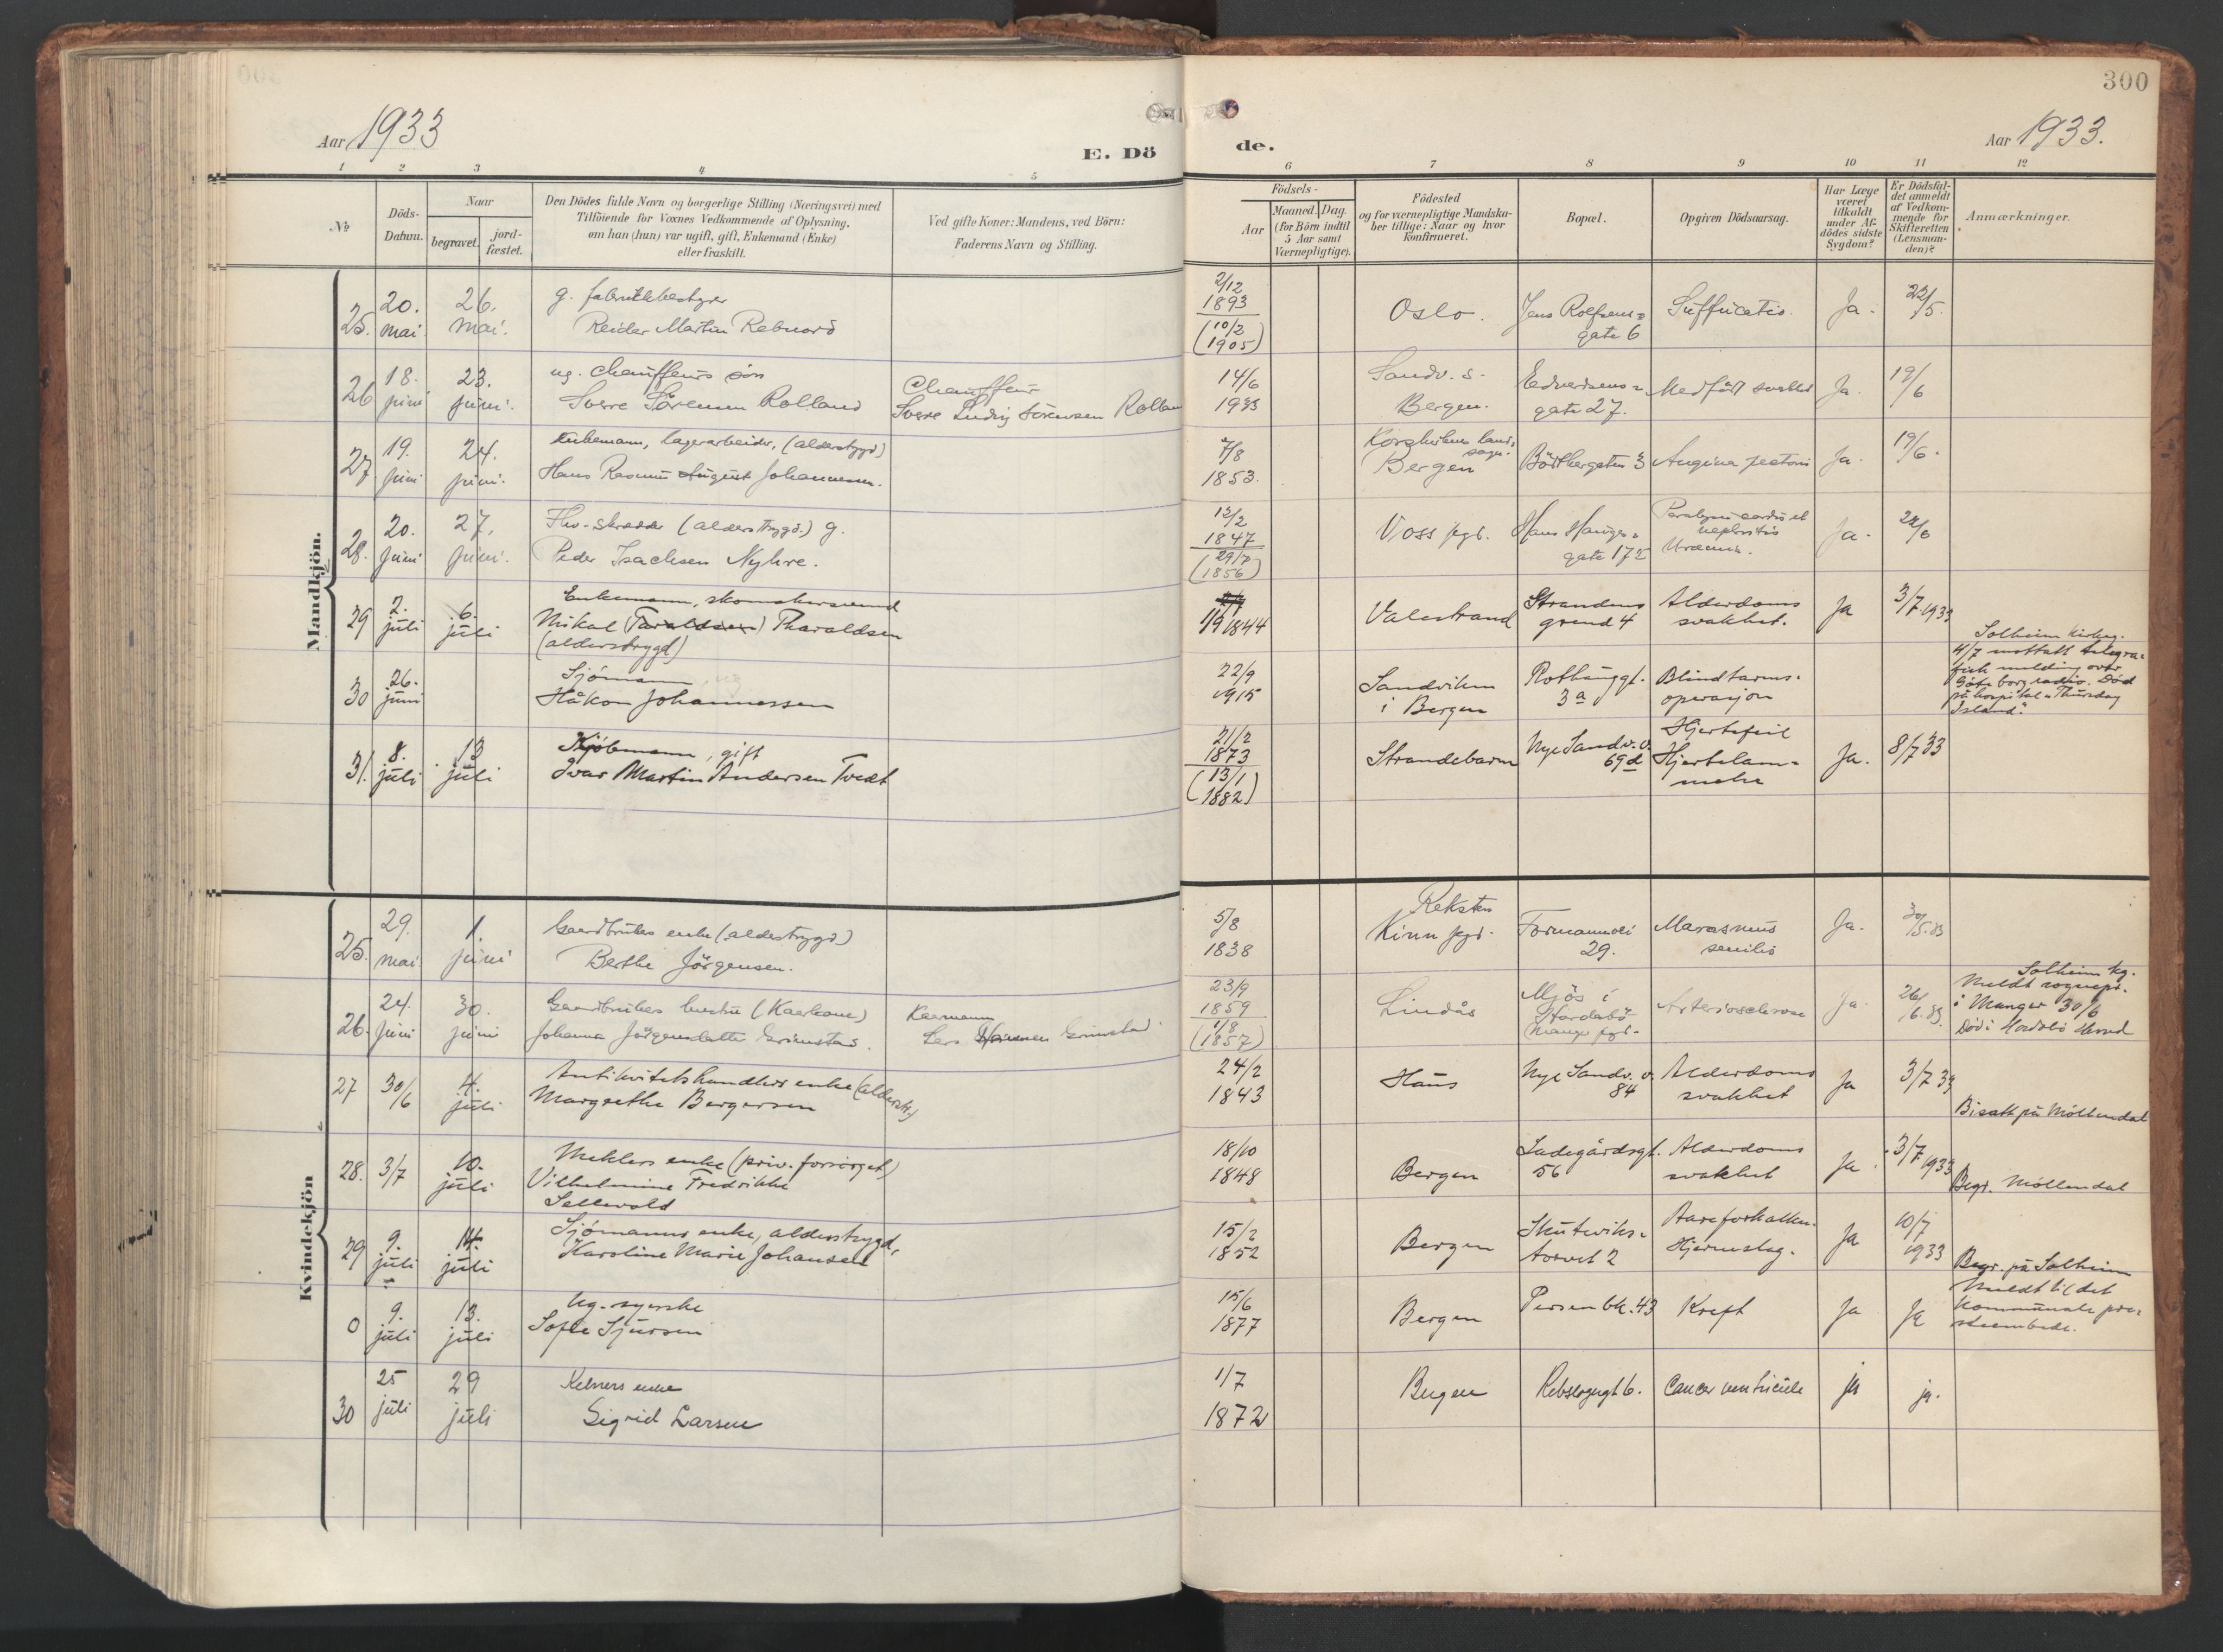 300
Aar 1933
E. Dö
de.
Aar 1933.
1 2 3 4 5
6 7 8 9 10 11 12
No
Döds-Datum.
Naar
begravet.
jord-fæstet.
Den Dödes fulde Navn og borgerlige Stilling (Næringsvei) med
Tilföiende for Voxnes Vedkommende af Oplysning,
om han (hun) var ugift, gift, Enkemand (Enke)
eller fraskilt.
Ved gifte Koner: Mandens, ved Börn:
Faderens Navn og Stilling.
Födsels-
Aar
Maaned. Dag.
(for Börn indtil
5 Aar samt
Værnepligtige).
Födested
og for værnepligtige Mandska-
ber tillige: Naar og hvor
konfirmeret.
Bopæl.
Opgiven Dödsaarsag.
Har Læge
været
tilkaldt
under Af-
dödes sidste
Sygdom?
Er Dödsfal-
det anmeldt
af Vedkom-
mende for
Skifteretten
(Lensman-
den)?
Anmærkninger.
Mandkjön.
25. 20. mai 26. mai.
g. fabrikkbestyrer
Reidar Martin Rebnord
2/12 1893 (10/2 1905)
Oslo.
Jens Rolfsens-
gate 6
Suffucatio.
Ja.
22/5.
26 18. juni 23. juni.
ug. chauffeurs søn
Sverre Sörensen Rolland
Chauffeur
Sverre Ludvig Sörensen Rolland
14/6 1933
Sandv. s.
Bergen.
Edvardsens-
gate 27.
Medfödt svakhet
Ja.
19/6
27 19. juni 24. juni.
Enkemann, lagerarbeider, (alderstrygd)
Hans Rasmus August Johannessen.
7/8 1853.
Korskirkens land-
sogn.
Bergen
Angina pectoris
Ja.
19/6.
28. 20. juni 27. juni.
Fhv. skredder (alderstrygd.) g.
Peder Isachsen Nyhre.
12/2 1847 (29/7 1856)
Voss pgd.
Hans Hauges-
gate 17
Paralysis cordis et
nephritis
Uræmia.
Ja.
/6
29 2. juli 6. juli
Enkemann, skomakersvend
Mikal (Taraldsen) Tharaldsen
(alderstrygd)
1/9 1844
Valestrand
Strandens
grend 4
Alderdoms
svakhet.
Ja
3/7 1933
30 26. juni
Sjömann, ug
Håkon Johannessen
22/9 1915
Sandviken
i Bergen
Rothauggt.
3a
Blindtarms-
operasjon
Solheim kirkeg.
4/7 mottatt telegra-
fisk melding over
Göteborg radio. Død
på hospital "Thursday
Island".
31. 8. juli 13 juli
Kjöbmann, gift
Ivar Martin Andersen Tvedt
21/2 1873 (13/1 1882)
Strandebarm
Nye Sandv. v.
69d
Hjertefeil
Hjertelam-
melse
Ja.
8/7 33
Kvindekjön
25. 29. mai 1. juni
Gaardbrukers enke (alderstrygd)
Berthe Jörgensen.
5/8 1838
Reksten
Kinn pgd.
Formannsvei
29.
Marasmus
senilis
Ja.
30/5. 33
26. 24. juni 30. juni
Gaardbrukers hustru (Kaarkone)
Johanna Jörgensdatter Grimstad.
Kaarmann
Lars Hansen Grimstad
23/9 1859 (1/8 1857)
Lindås
Mjös i
Hordabö
Manger pgd.
Arteriosclerose
Ja.
26/6. 33.
Solheim kg.
Meldt sognepr.
i Manger 30/6
Död i Hordabö Herred
27 30/6 4. juli
Antikvitetshandlers enke (alderstr.)
Margrethe Bergersen
24/2 1843
Haus
Nye Sandv. v.
84
Alderdoms
svakhet
Ja
3/7 33
Bisatt på Möllendal
28. 3/7 10. juli
Meklers enke (priv. forsörget)
Vilhelmine Fredrikke
Sellevold
18/10 1848
Bergen
Ladegårdsgt.
56
Alderdoms
svakhet
Ja
3/7 1933
Begr. Möllendal
29 9. juli 14. juli
Sjömanns enke, alderstrygd,
Karoline Marie Johansen
15/2 1852
Bergen
Skuteviks-
torvet 2
Aareforkalkn.
Hjerneslag.
Ja
10/7 1933
Begr. på Solheim
0 9. juli 13. juli
Ug. syerske
Sofie Sjursen
15/6 1877
Bergen
Persenbk. 43
Kreft
Ja
Ja
Meldt til det
kommunale pre-
steembede.
30 25 juli 29 juli
Kelners enke
Sigrid Larsen
1/7 1872
Bergen
Rebslagergt 6.
Cancer ventriculi
ja
ja.